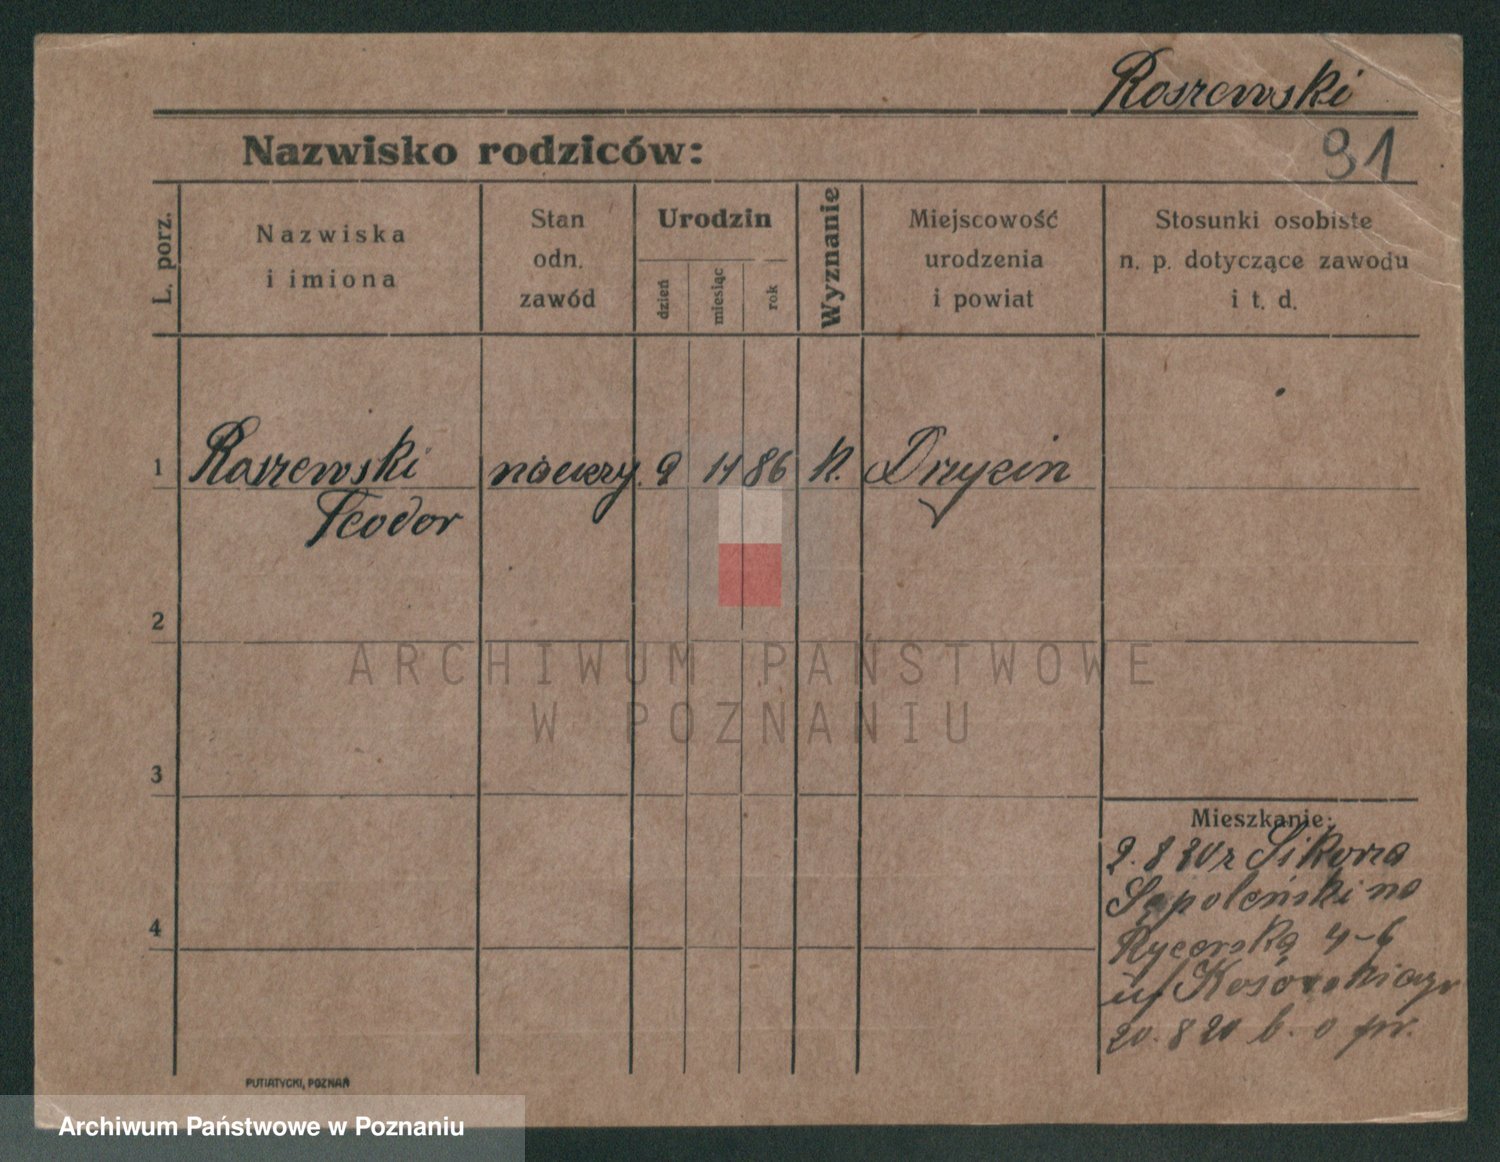 Roszewski
91
Nazwisko rodziców:
L. porz.
Nazwiska
i imiona
Stan
odn.
zawód
Urodzin
dzień
miesiąc
rok
Wyznanie
Miejscowość
urodzenia
i powiat
Stosunki osobiste
n. p. dotyczące zawodu
i t. d.
1 Roszewski 9 11 86 k.
Teodor
2
3
4
Mieszkanie:
2. 8 20 z Sikorra
Sępoleński na
Rycerską 4-6
20. 8 20 b. o pr.
PUTIATYCKI, POZNAŃ
ARCHIWUM PAŃSTWOWE
W POZNANIU
Archiwum Państwowe w Poznaniu